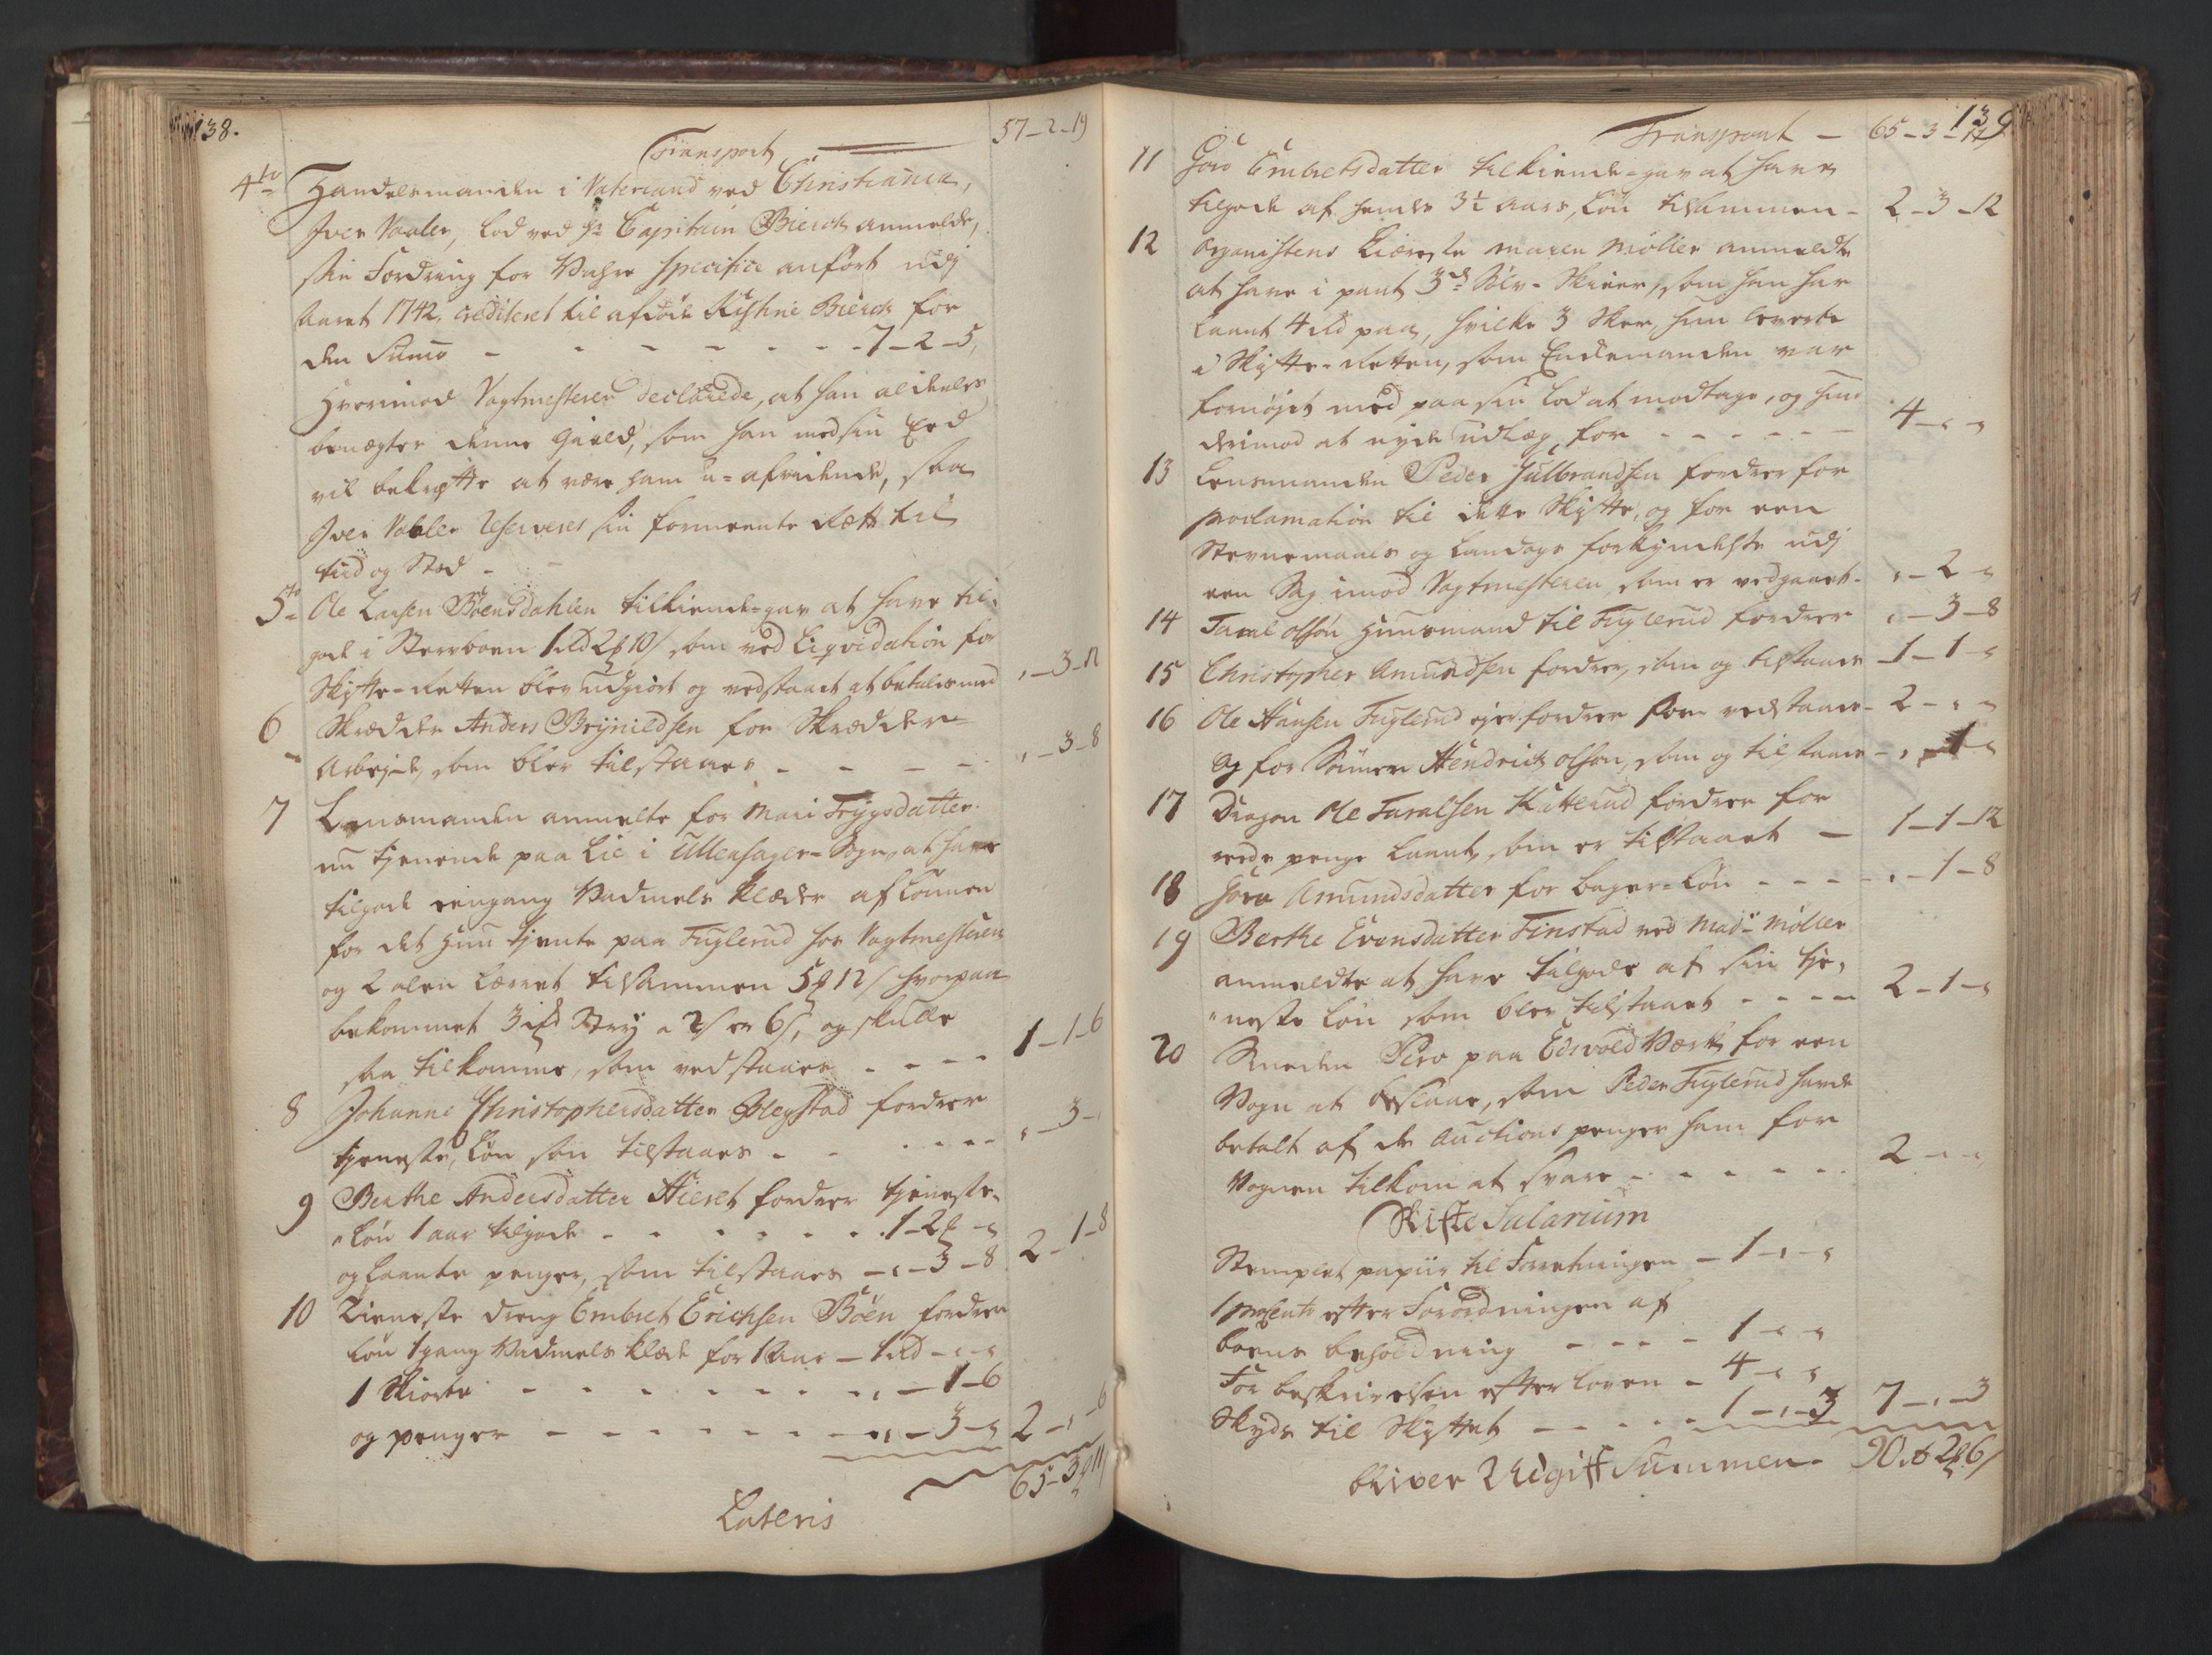 138.
Transport 57-2-19
4to Handelsmanden i Vaterland ved Christiania,
Iver Vaaler, lod ved Hr Capitain Bierch anmelde,
sin Fordring for Vahre specifice anført udj
Aaret 1742. crediteret til afdøde Kistine Bierch for
den Summa - - - - - - 7-2-5,
Hvorimod Vagtmesteren declarede, at han aldeeles
benægter denne Gield, som han med sin Eed
vil bekræfte at være ham u-afvidende, saa
Iver Vaaler reserveres sin formeente Rætt til
tiid og Stæd -
5to Ole Larsen Böensdahlen tilkiende-gav at have til-
gode i Sterboen 1 rd 2 ß 10/ som ved Liqvidation for
Skifte-Retten blev udgiort og vedstaaet at betales med , -3-12
6 Skrædder Anders Brynildsen for Skrædder-
Arbejde, som blev tilstaaet - - - - , -3-8
7 Lensmanden anmelte for Mari Trygsdatter
nu tjenende paa Lie i Ullensager-Sogn, at have
tilgode eengang Vadmels Klæder af Lönnen
for det Hun tjente paa Fuglerud hos Vagtmesteren
og 2 alen Lærret tilsammen 5 ß 12/ hvorpaa
bekommet 3 Stry a 2/ er 6/, og skulle
saa tilkomme, som vedstaaes - - - 1-1-6
8 Johanne Christophersdatter Blegstad fordrer
tjeneste, Lön som tilstaaes - - - - - , -3-,
9 Berthe Andersdatter Hieret fordrer tjeneste-
Lön 1 aar tilgode - - - - - - 1-2-"
og laante penger, som tilstaaes - , -3-8 2-1-8
10 Tieneste dreng Embret Erichsen Böen fordrer
Lön 1 gang Vadmels Klæde for 1 Aar - 1 rd - , -
1 Skiorte - - - - - - - , - 1-6
og penger - - - - - - - , -3- 2-,-6
Lateris 65-3-11
139
Transport - 65-3-11
11 Goro Embretsdatter tilkiende-gav at have
tilgode af hendes 3½ aars, Lön tilsammen - 2-3-12
12 Organistens Kiæreste Maren Möller anmeldte
at have i pant 3de Sölv-Skieer, som hun har
laant 4 rd paa, hvilke 3 Skeer, hun leverte
i Skifte-Retten, som Enckemanden var
fornöjet med paa sin lod at modtage, og hun
derimod at nyde udlæg, for - - - - - 4 - , -
13 Lensmanden Peder Gulbrandsen fordrer for
proclamation til dette Skifte, og for een
Stevnemaals og Landags forkyndelse udj
een Sag imod Vagtmesteren som er vedgaaet - , -2-
14 Taral Olsön Huusmand til Fuglerud fordrer , -3-8
15 Christopher Amundsen fordrer, som og tilstaaes 1-1-
16 Ole Hansen Fuglerud ejer fordrer som vedstaaes - 2 - , -
og for Sönnen Hendrich Olsön, som og tilstaaes - , -1-
17 Dragon Ole Taralsen Kutterud fordrer for
rede penge laant, som er tilstaaet - 1-1-12
18 Goro Amundsdatter for bager-Lön - - - , -1-8
19 Berthe Evensdatter Finstad ved Mad: Möller
anmeldte at have tilgode af sin tje-
neste Lön som blev tilstaaet - - - - 2-1-
20 Smeden Pero paa Edsvold Værk for een
Vogn at beslaae, som Peder Fuglerud havde
betalt af de Auctions penger ham for
Vognen tilkom at svare - - - - - 2 - -
Skifte Salarium
Stemplet papiir til Forretningen - 1 - , -
1 procento efter Forordningen af
boens beholdning - - - 1 - , -
For beskrivelsen efter loven - 4 - , -
Skyds til Skiftet - - - - - 1 - , -3 7 - , -3
bliver Udgift Summen - 90 rd 2 ß 6/